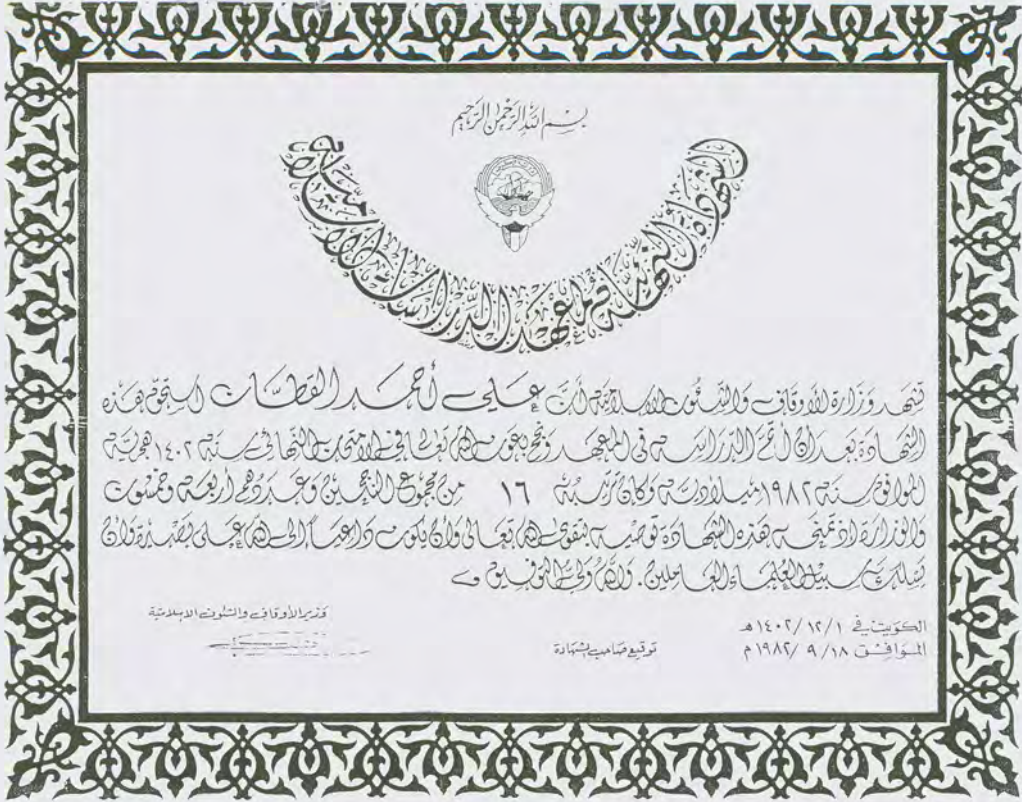 بسم الله الرحمن الرحيم
الشهادة النهائية لمعهد الدراسات الإسلامية
تشهد وزارة الأوقاف والشئون الإسلامية أن علي أحمد القطان استحق هذه
الشهادة بعد أن أتم الدراسة في المعهد ونجح بعون الله تعالى في الامتحان النهائي سنة ١٤٠٢ هجرية
الموافق سنة ١٩٨٢ ميلادية وكان ترتيبه ١٦ من مجموع الناجحين وعددهم أربعة وخمسون
والوزارة إذ تمنحه هذه الشهادة توصيه بتقوى الله تعالى وأن يكون داعياً إلى الله على بصيرة وأن
يسلك سبيل العلماء العاملين. والله ولي التوفيق
وزير الأوقاف والشئون الإسلامية
توقيع صاحب الشهادة
الكويت في ١٤٠٢/١٢/١ هـ
الموافق ١٩٨٢/٩/١٨ م